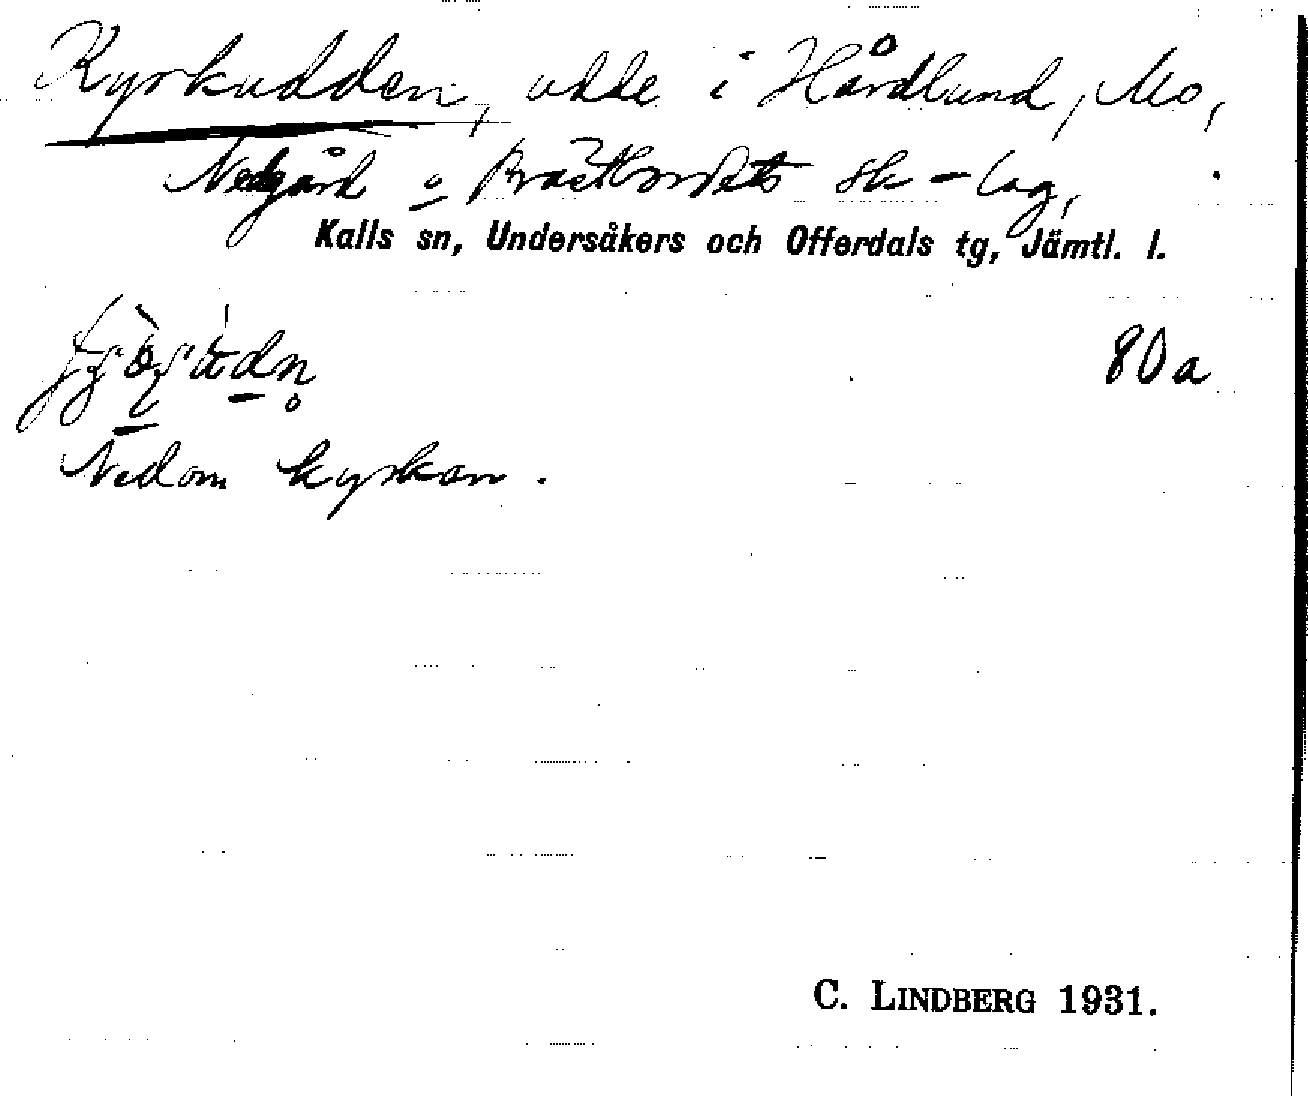 Kyrkudden, udde i Hårdlund, Mo,
Nedgård o Prästbordets sk-lag,
Kalls sn, Undersåkers och Offerdals tg, Jämtl. l.
80a
Nedom kyrkan.
C. LINDBERG 1931.